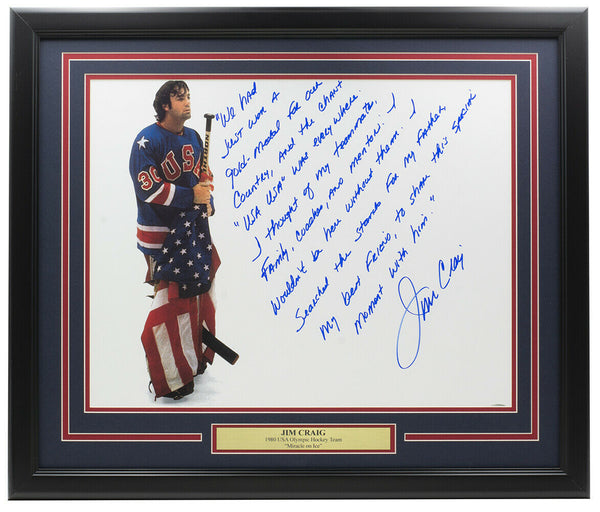 "We had
Just won a
gold-medal for our
Country, and the chant
"USA USA" was everywhere.
I thought of my teammates,
Family, coaches, and mentors. I
Wouldn't be here without them. I
Searched the stands for my Father,
My best Friend, to share this special
Moment with him."
Jim Craig
USA
30
JIM CRAIG
1980 USA Olympic Hockey Team
"Miracle on Ice"